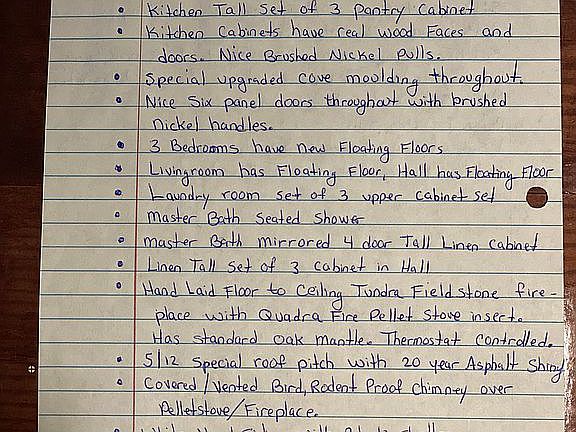 • Kitchen Tall Set of 3 pantry Cabinet
• Kitchen Cabinets have real wood Faces and
doors. Nice Brushed Nickel pulls.
• Special upgraded cove moulding throughout.
• Nice Six panel doors throughout with brushed
nickel handles.
• 3 Bedrooms have new Floating Floors
• Livingroom has Floating Floor, Hall has Floating Floor
• Laundry room set of 3 upper cabinet set
• Master Bath Seated Shower
• master Bath mirrored 4 door Tall Linen Cabinet
• Linen Tall Set of 3 Cabinet in Hall
• Hand Laid Floor to Ceiling Tundra Field stone fire-
place with Quadra Fire Pellet Stove insert.
Has standard oak mantle. Thermostat controlled.
• 5/12 Special roof pitch with 20 year Asphalt
• Covered/Vented Bird, Rodent Proof Chimney over
Pelletstove/Fireplace.